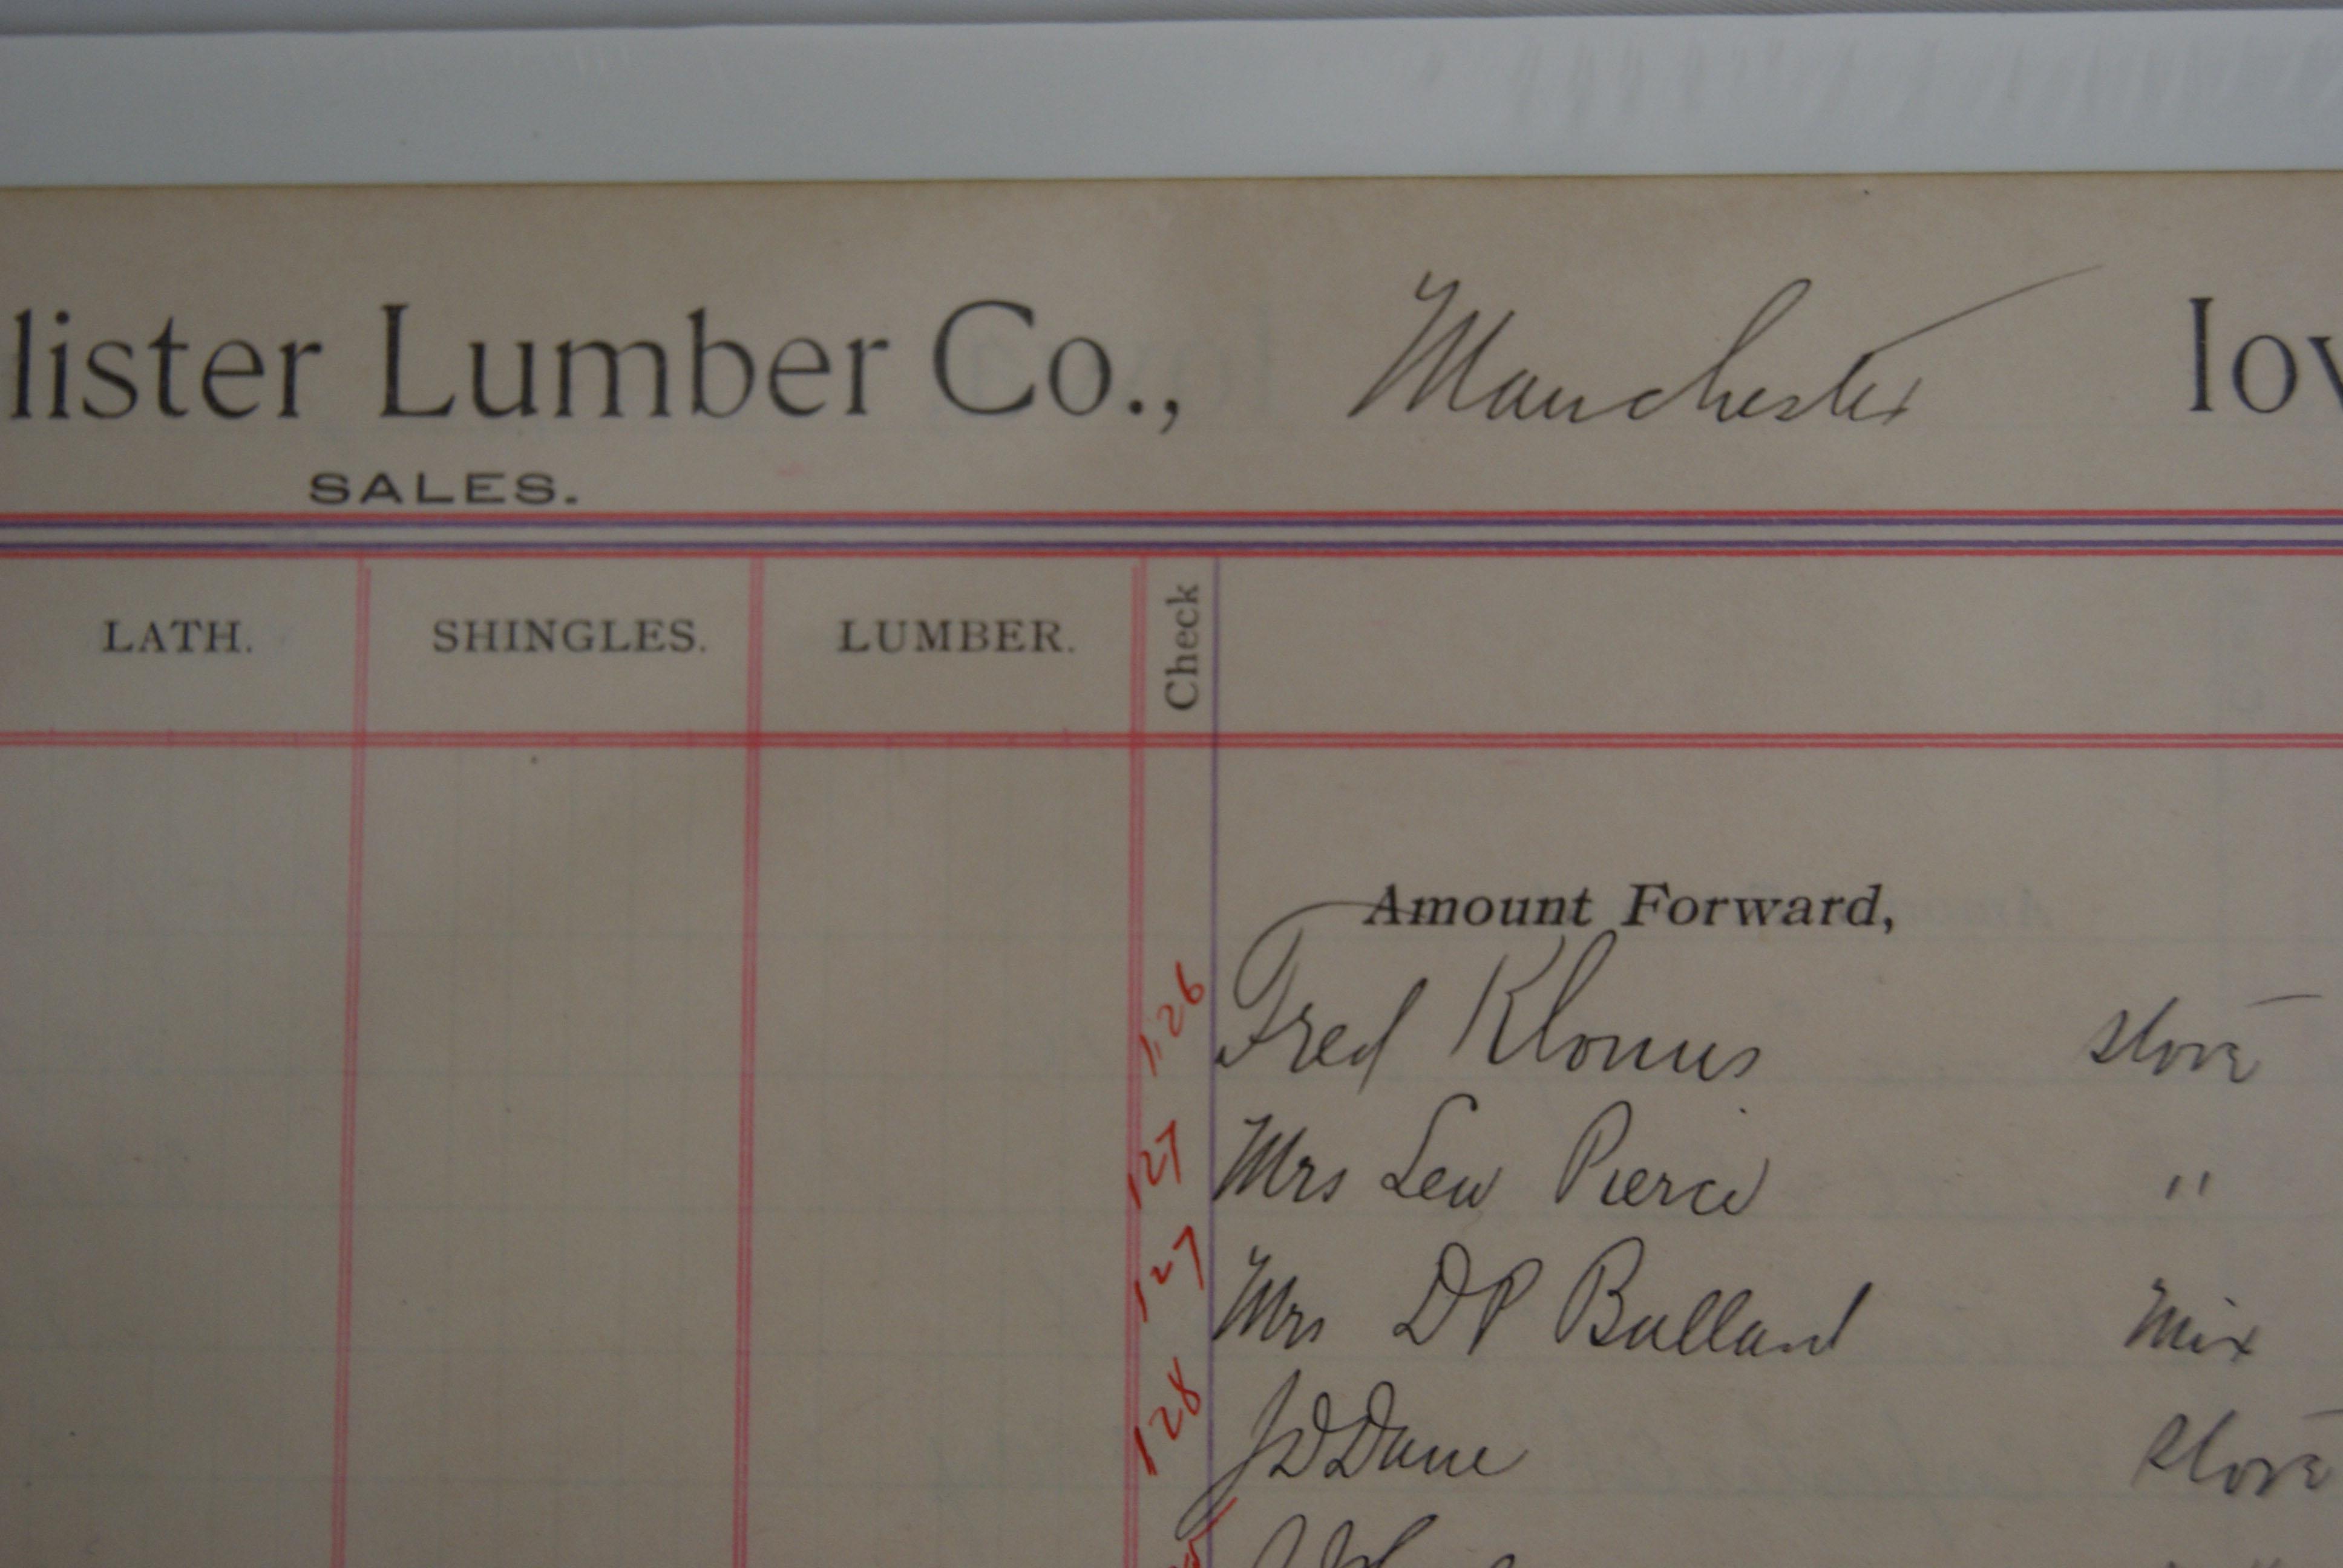 lister Lumber Co., Manchester Iow
SALES.
LATH. SHINGLES. LUMBER. Check
Amount Forward,
126 Fred Klomus stove
127 Mrs Lew Pierce "
127 Mrs DP Bullard mix
128 JD Dane stove